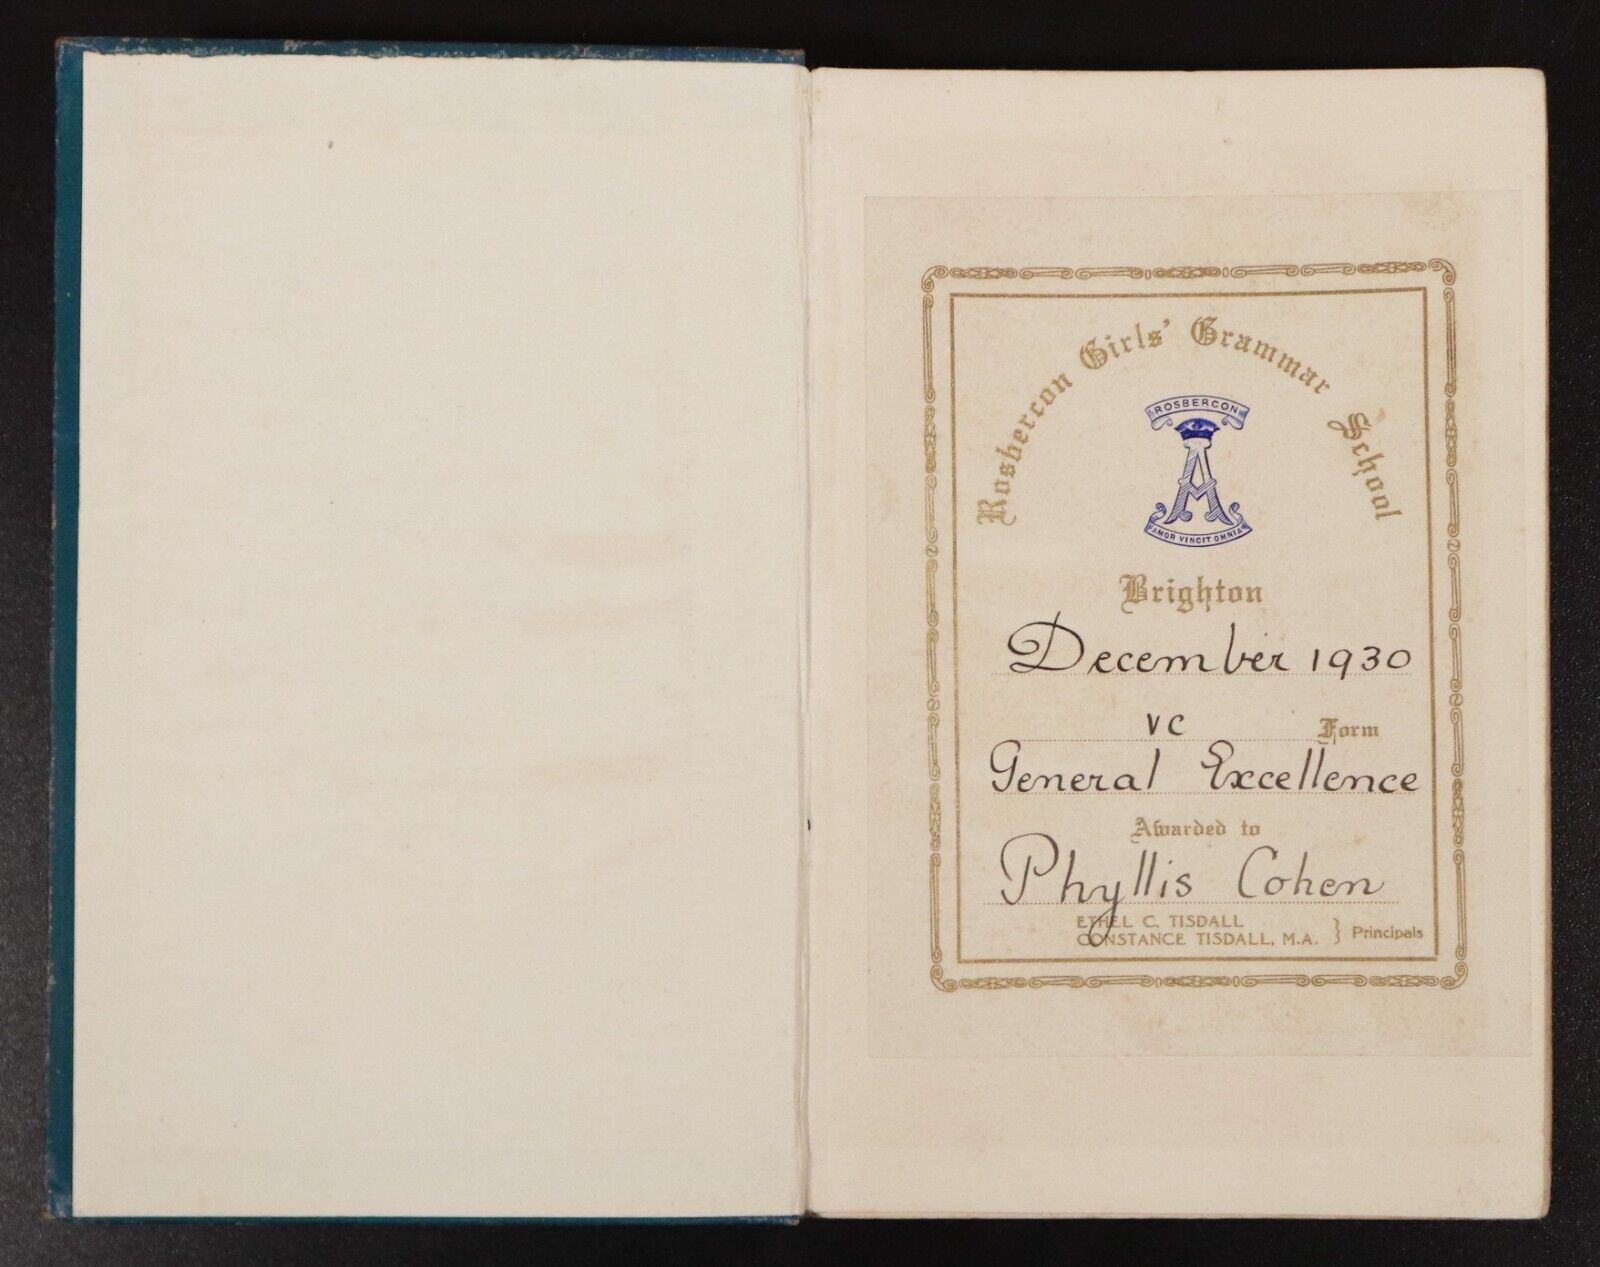 Rosbercon Girls' Grammar School
ROSBERCON
A
AMOR VINCIT OMNIA
Brighton
December 1930
VC Form
General Excellence
Awarded to
Phyllis Cohen
ETHEL C. TISDALL
CONSTANCE TISDALL, M.A. } Principals